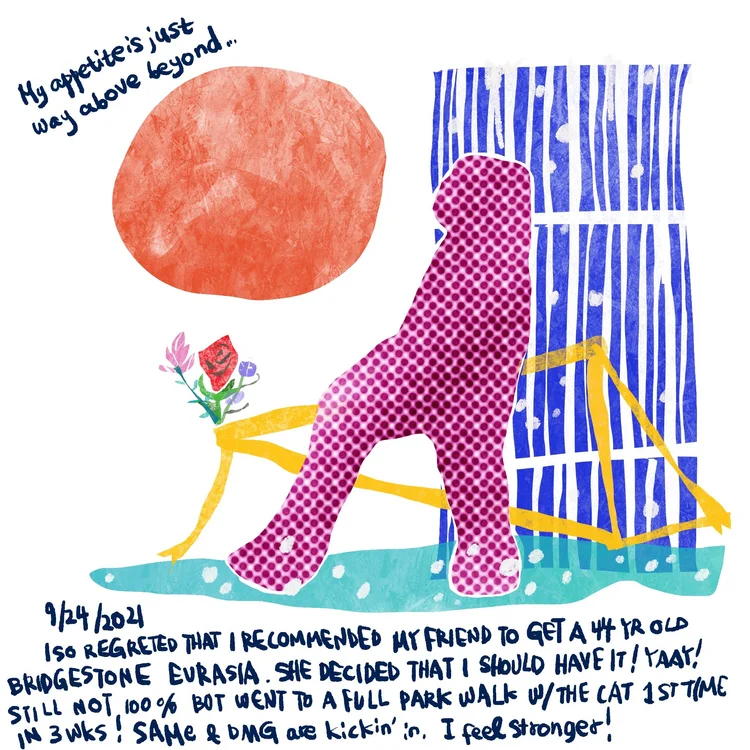 My appetite is just
way above beyond...
9/24/2021
I SO REGRETED THAT I RECOMMENDED MY FRIEND TO GET A 44 YR OLD
BRIDGESTONE EURASIA. SHE DECIDED THAT I SHOULD HAVE IT! YAAY!
STILL NOT 100% BOT WENT TO A FULL PARK WALK W/ THE CAT 1ST TIME
IN 3 WKS! SAMe & DMG are kickin' in. I feel stronger!